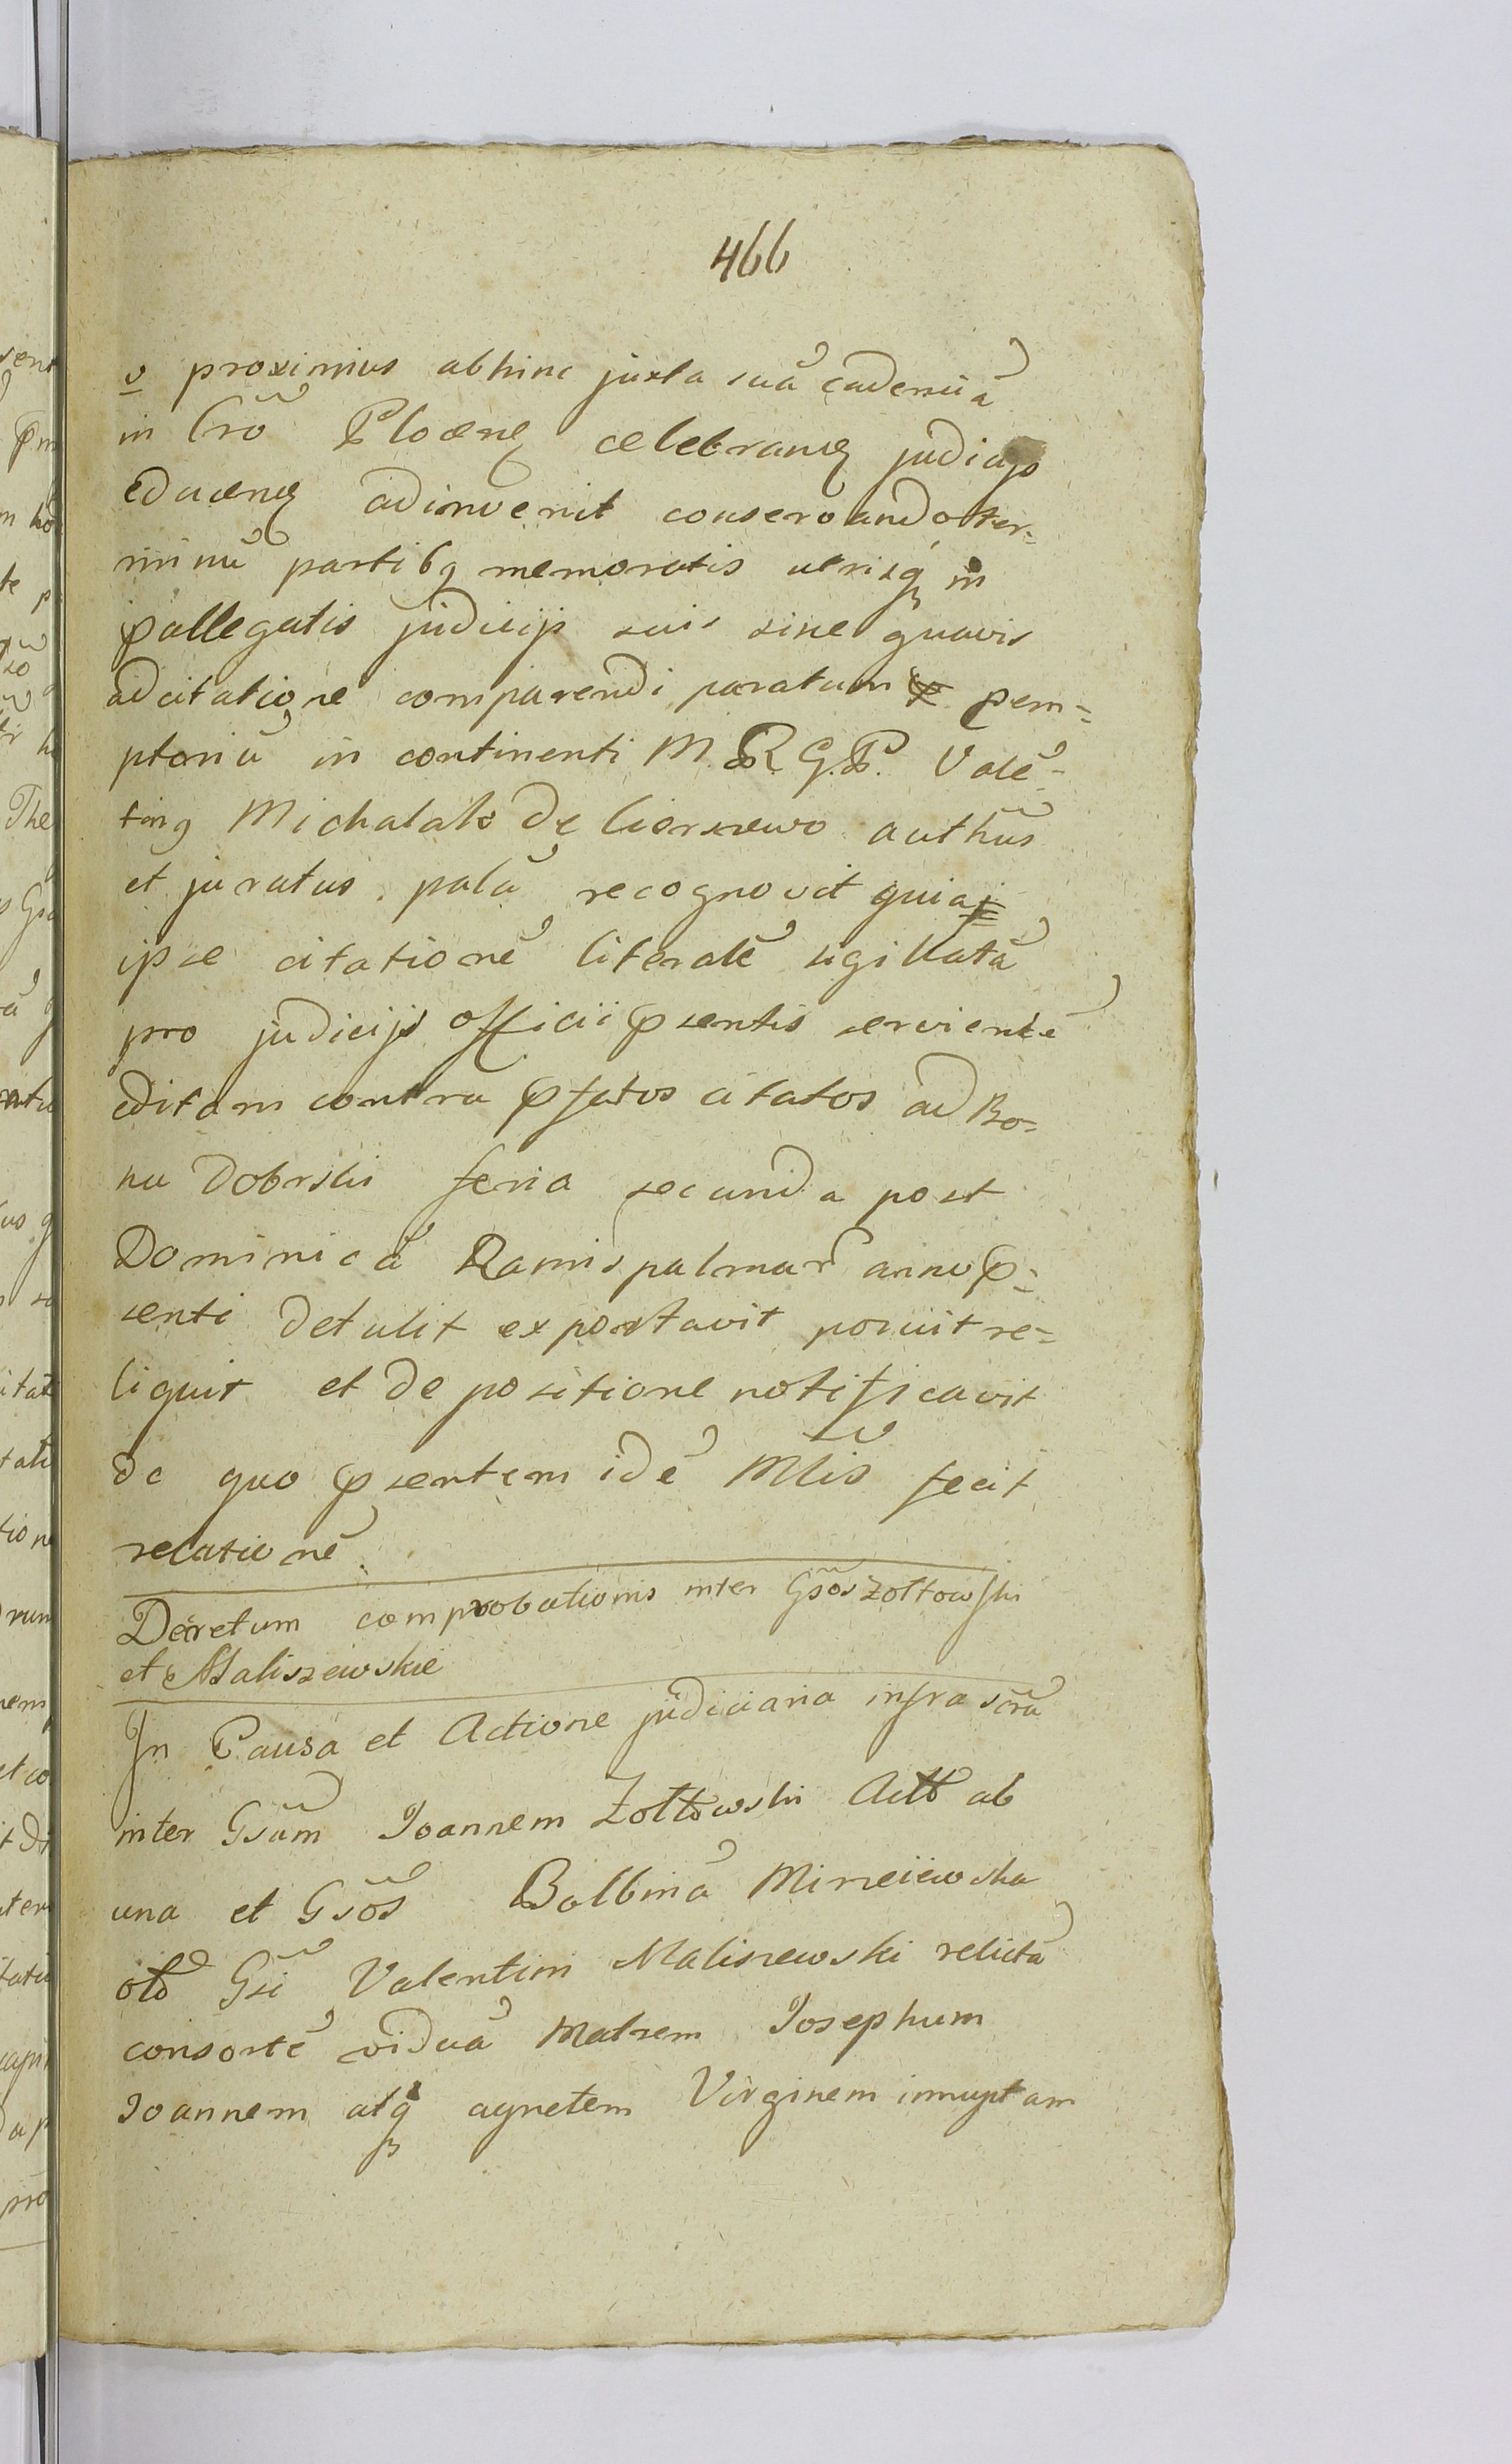 466
v proximius abhinc juxta suã cadentiã
in Crõ Plocenꝫ celebranꝫ judicijs
educenꝫ adinvenit conservando ter=
minũ partibꝫ memoratis utrisqꝫ in
pallegatis judicijs suis sine quavis
adcitatione comparendi paratum pem=
ptoriũ in continenti M. R. G. P. Valẽ=
tinꝫ Michalak de Cierszewo authũs
et juratus palã recognovit quia
ipse citationẽ literalẽ sigillatã
pro judicijs officii psentis servientẽ
editam contra pfatos citatos ad Bo=
na Dobrski feria secunda post
Dominicã Ramispalmar̃ anno p=
senti detulit exportavit posuit re=
liquit et de positione notificavit
de quo psentem idẽ Mlĩs fecit
relationẽ
Decretum comprobationis inter Gsõs Zołtowski
et Maliszewskie
In Causa et Actione judiciaria infra scrã
inter Gsũm Joannem Zołtowski Actõ ab
una et Gsõs Balbinã
olõ Gsĩ Valentini Maliszewski relictã
consortẽ viduã Matrem Josephum
Joannem atqꝫ agnetem Virginem innuptam